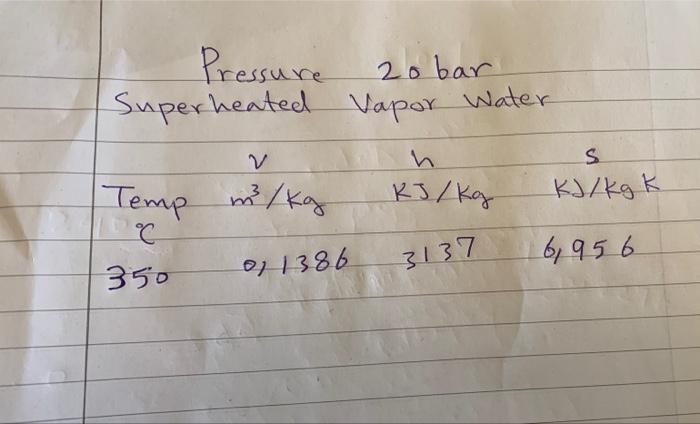 Pressure 20 bar
Superheated Vapor Water
v h s
Temp m³/kg KJ/kg KJ/kg K
°C
350 0,1386 3137 6,956